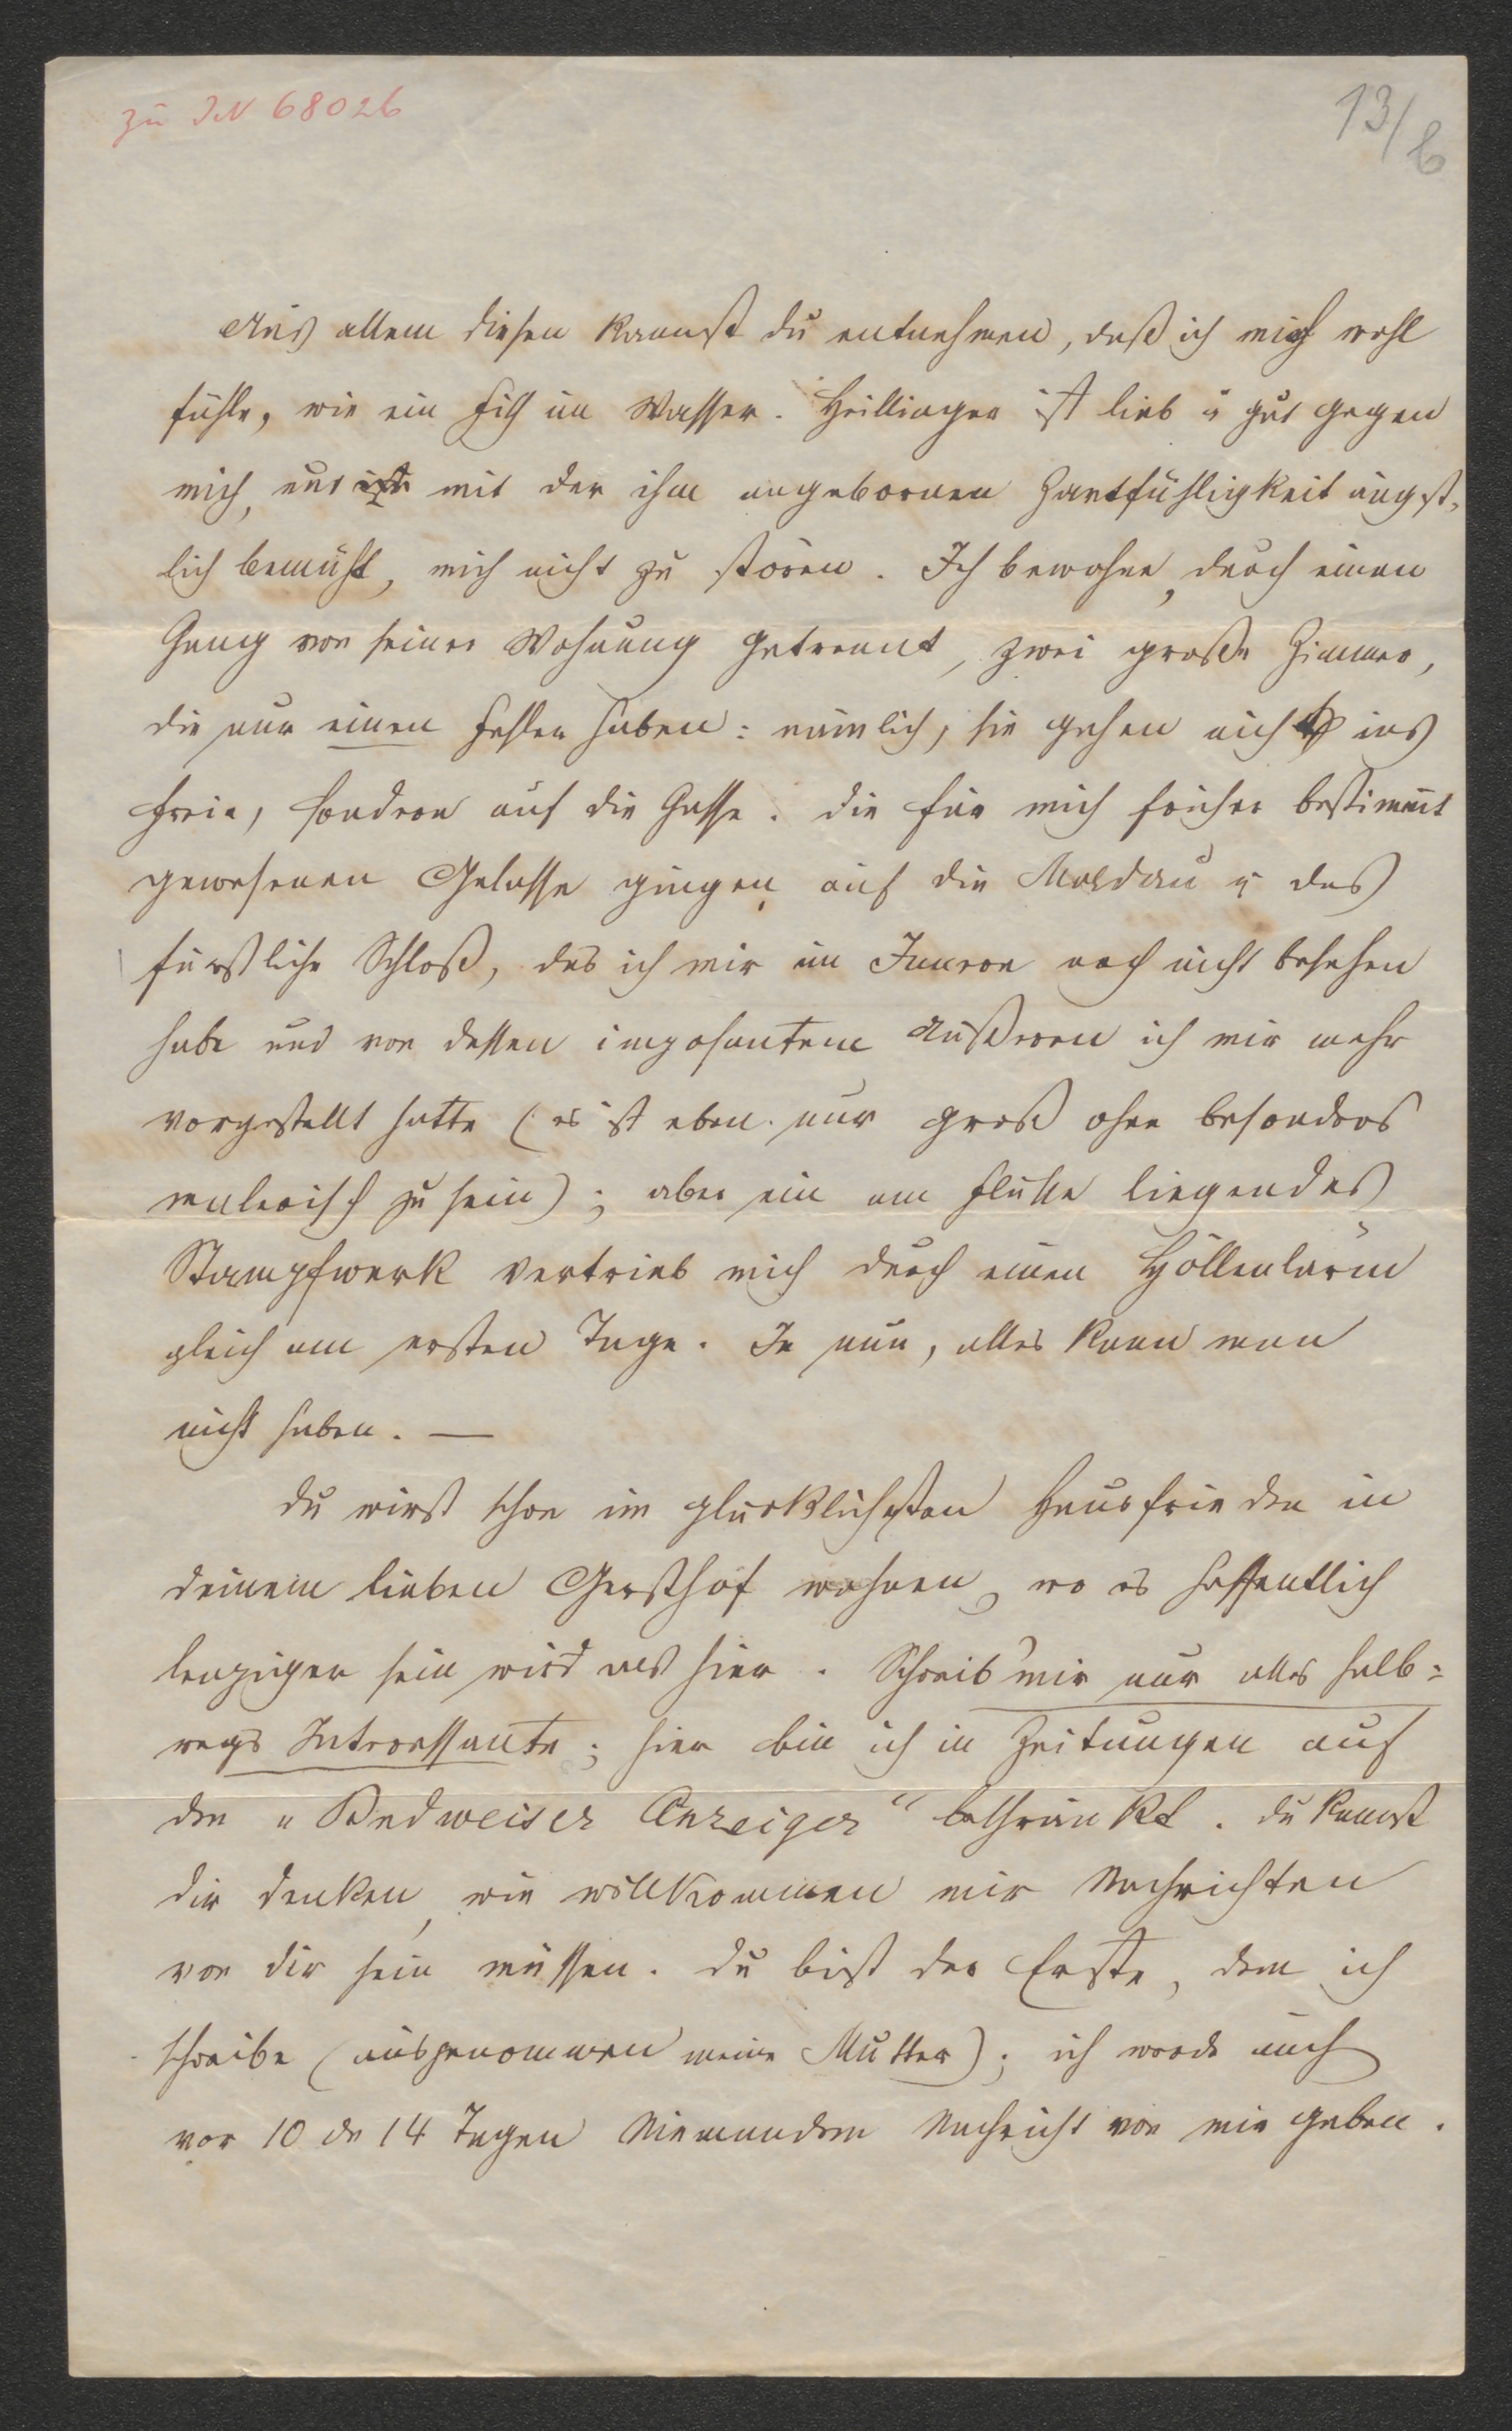 zu IN 68026
13/6
Aus allem diesen kannst du entnehmen, daß ich mich wohl
fühle, wie ein Fisch im Wasser. Heillinger ist lieb u gut gegen
mich, und mit der ihm angebornen Zartfühligkeit ängst-
lich bemüht, mich nicht zu stören. Ich bewohne, durch einen
Gang von seiner Wohnung getrennt, zwei große Zimmer,
die nur einen Fehler haben: nämlich, sie gehen nicht ins
Freie, sondern auf die Gasse. Die für mich früher bestimmt
gewesenen Gelasse gingen auf die Moldau u das
fürstliche Schloß, das ich mir im Innern noch nicht besehen
habe und von dessen imposantem Äußeren ich mir mehr
vorgestellt hatte (es ist eben nur groß ohne besonders
malerisch zu sein); aber ein am Flusse liegendes
Stampfwerk vertrieb mich durch einen Höllenlärm
gleich am ersten Tage. Je nun, alles kann man
nicht haben. —
Du wirst schon im glücklichsten Hausfrieden in
deinem lieben Gersthof wohnen, wo es hoffentlich
lenziger sein wird als hier. Schreib' mir nur alles halb-
wegs Interessante; hier bin ich in Zeitungen auf
den „Budweiser Anzeiger" beschränkt. Du kannst
dir denken, wie willkommen mir Nachrichten
von dir sein müssen. Du bist der Erste, dem ich
schreibe (ausgenommen meine Mutter); ich werde auch
vor 10 de 14 Tagen Niemandem Nachricht von mir geben.